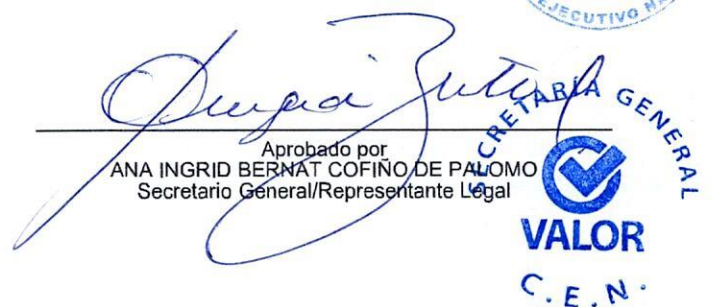 EJECUTIVO
Aprobado por
ANA INGRID BERNAT COFIÑO DE PALOMO
Secretario General/Representante Legal
SECRETARÍA GENERAL
VALOR
C.E.N.